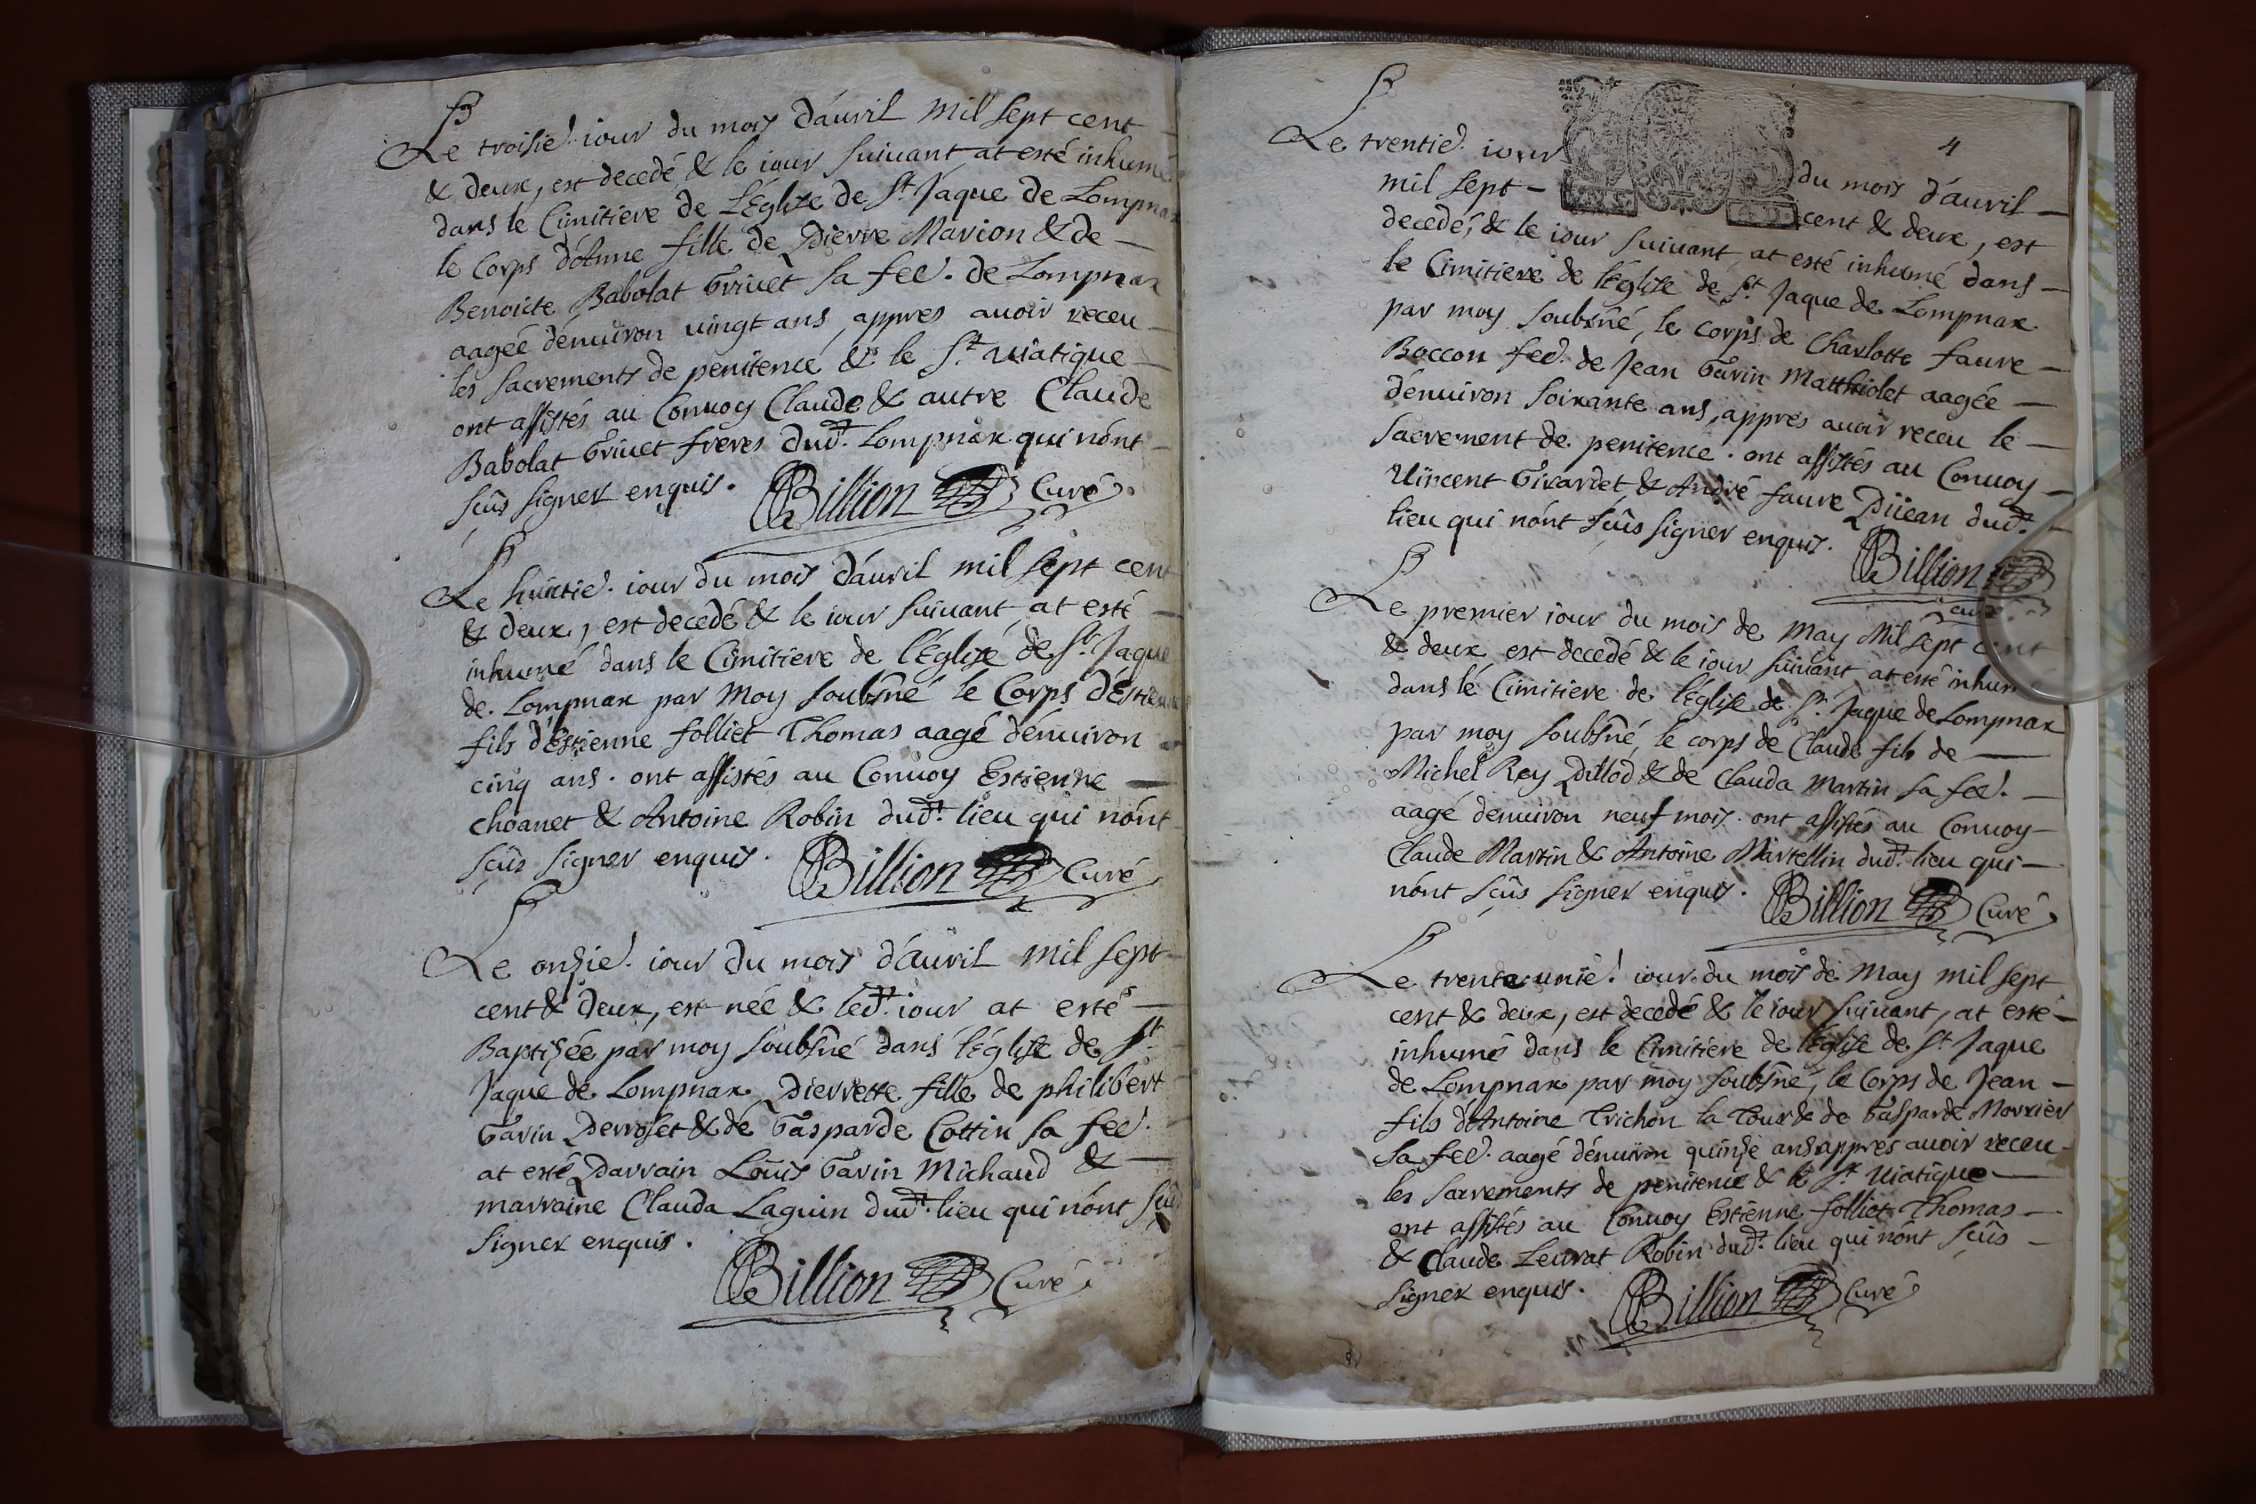 Le troisie. iour du mois d'auril mil sept cent
& deux, est decedé & le iour suiuant at esté inhumé
dans le Cimitiere de L'Eglise de St Jaque de Lompnax
le Corps d'Anne fille de Pierre Marion & de
Benoicte Babolat Griuet sa fee. de Lompnax
aagée d'enuiron uingt ans, appres auoir receu
les sacrements de penitence & le St. uiatique
ont assistés au Conuoy Claude & autre Claude
Babolat Griuet freres dud. Lompnax qui n'ont
sçûs signer enquis. Billion Curé
Le huictie. iour du mois d'auril mil sept cent
& deux, est decedé & le iour suiuant, at esté
inhumé dans le Cimitiere de l'Eglise de St. Jaque
de Lompnax par moy soubsné le Corps d'Estienne
fils d'Estienne folliet Thomas aagé d'enuiron
cinq ans. ont assistés au Conuoy Estienne
choanet & Antoine Robin dud. lieu qui n'ont
sçûs signer enquis. Billion Curé
Le onzie. iour du mois d'auril mil sept
cent & deux, est née & led. iour at esté
Baptisée par moy soubsné dans l'église de St.
Jaque de Lompnax Pierrette fille de philibert
Gavin Perroset & de Gasparde Cottin sa fee.
at esté Parrain Loüis Gavin Michaud &
marraine Clauda Laguin dud. lieu qui n'ont sçûs
signer enquis.
Billion Curé
4
Le trentie. iour du mois d'auril
mil sept cent & deux, est
decedé, & le iour suiuant, at esté inhumé dans
le Cimitiere de l'église de St. Jaque de Lompnax
par moy soubsné, le corps de Charlotte faure
Boccon fee. de Jean Gavin Matthiolet aagée
d'enuiron soixante ans, appres auoir receu le
sacrement de penitence. ont assistés au Conuoy
Uincent Girardet & André faure Piiean dud.
lieu qui n'ont sçûs signer enquis. Billion
curé
Le premier iour du mois de may mil sept cent
& deux est decedé & le iour suiuant, at esté inhumé
dans le Cimitiere de l'église de St. Jaque de Lompnax
par moy soubsné, le corps de Claude fils de
Michel Rey Pillod & de Clauda Martin sa fee.
aagé d'enuiron neuf mois. ont assistés au Conuoy
Claude Martin & Antoine Martellin dud. lieu qui
n'ont sçûs signer enquis. Billion Curé
Le trente unie. iour du mois de may mil sept
cent & deux, est decedé & le iour suiuant, at esté
inhumé dans le Cimitiere de l'église de St. Jaque
de Lompnax par moy soubsné, le Corps de Jean
fils d'Antoine Trichon la Tour & de Gasparde Morrier
sa fee. aagé d'enuiron quinze ans appres auoir receu
les sacrements de penitence & le St. uiatique
ont assistés au Conuoy Estienne folliet Thomas
& Claude Leurat Robin dud. lieu qui n'ont sçûs
signer enquis. Billion Curé